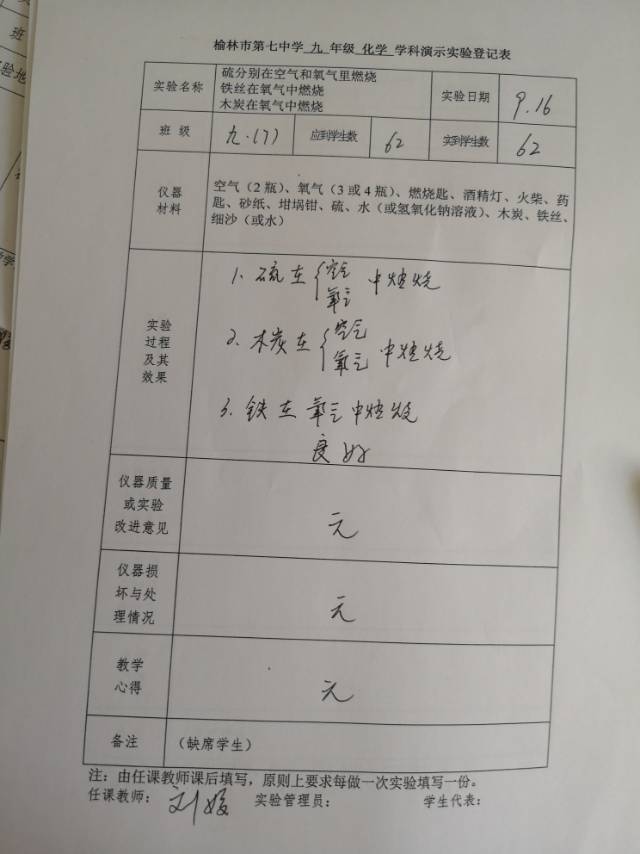 榆林市第七中学 九 年级 化学 学科演示实验登记表
实验名称
硫分别在空气和氧气里燃烧
铁丝在氧气中燃烧
木炭在氧气中燃烧
实验日期
9.16
班 级
九.(7)
应到学生数
62
实到学生数
62
仪器
材料
空气(2瓶)、氧气(3或4瓶)、燃烧匙、酒精灯、火柴、药
匙、砂纸、坩埚钳、硫、水(或氢氧化钠溶液)、木炭、铁丝、
细沙(或水)
实验
过程
及其
效果
1. 硫在{空气 氧气 中燃烧
2. 木炭在{空气 氧气 中燃烧
3. 铁在氧气中燃烧
良好
仪器质量
或实验
改进意见
无
仪器损
坏与处
理情况
无
教学
心得
无
备注
(缺席学生)
注:由任课教师课后填写,原则上要求每做一次实验填写一份。
任课教师: 刘媛 实验管理员: 学生代表: